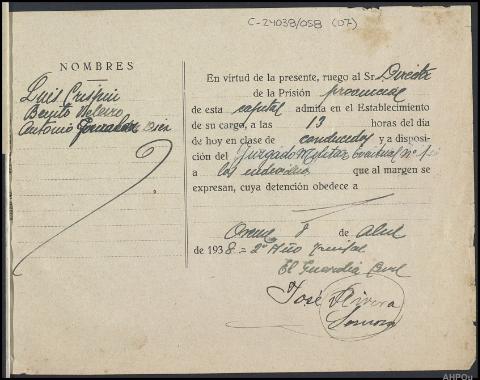 C-24038/058 (07)
NOMBRES
Luis Crispin
Benito Meleiro
Antonio Gonzalez
En virtud de la presente, ruego al Sr. Director
de la Prisión provincial
de esta capital admita en el Establecimiento
de su cargo, a las 13 horas del día
de hoy en clase de conducidos y a disposi-
ción del Juzgado Militar Eventual Nº 1
a los individuos que al margen se
expresan, cuya detención obedece a
Orense 8 de Abril
de 1938 = 2º Año Triunfal
El Guardia Civil
José Rivera
AHPOu